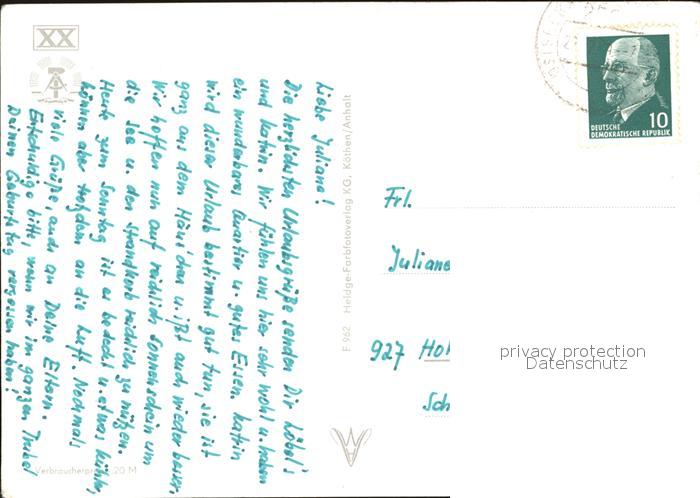 XX
Liebe Juliane!
Die herzlichsten Urlaubsgrüße senden Dir Löbel's
und Katrin. Wir fühlen uns hier sehr wohl u. haben
ein wunderbares Quartier u. gutes Essen. Katrin
wird dieser Urlaub bestimmt gut tun, sie ist
ganz aus dem Häus'chen u. ißt auch wieder besser.
Wir hoffen nun auf reichlich Sonnenschein um
die See u. den Strandkorb reichlich zu nützen.
Heute zum Sonntag ist es bedeckt u. etwas kühler,
können aber trotzdem an die Luft. Nochmals
viele Grüße, auch an Deine Eltern.
Entschuldige bitte, wenn wir im ganzen Trubel
Deinen Geburtstag vergessen haben!
Verbraucherpreis 0,20 M
F 962 Heldge-Farbfotoverlag KG, Köthen/Anhalt
10
DEUTSCHE
DEMOKRATISCHE REPUBLIK
Frl.
Juliane
927 Hoh
Sch
privacy protection
Datenschutz